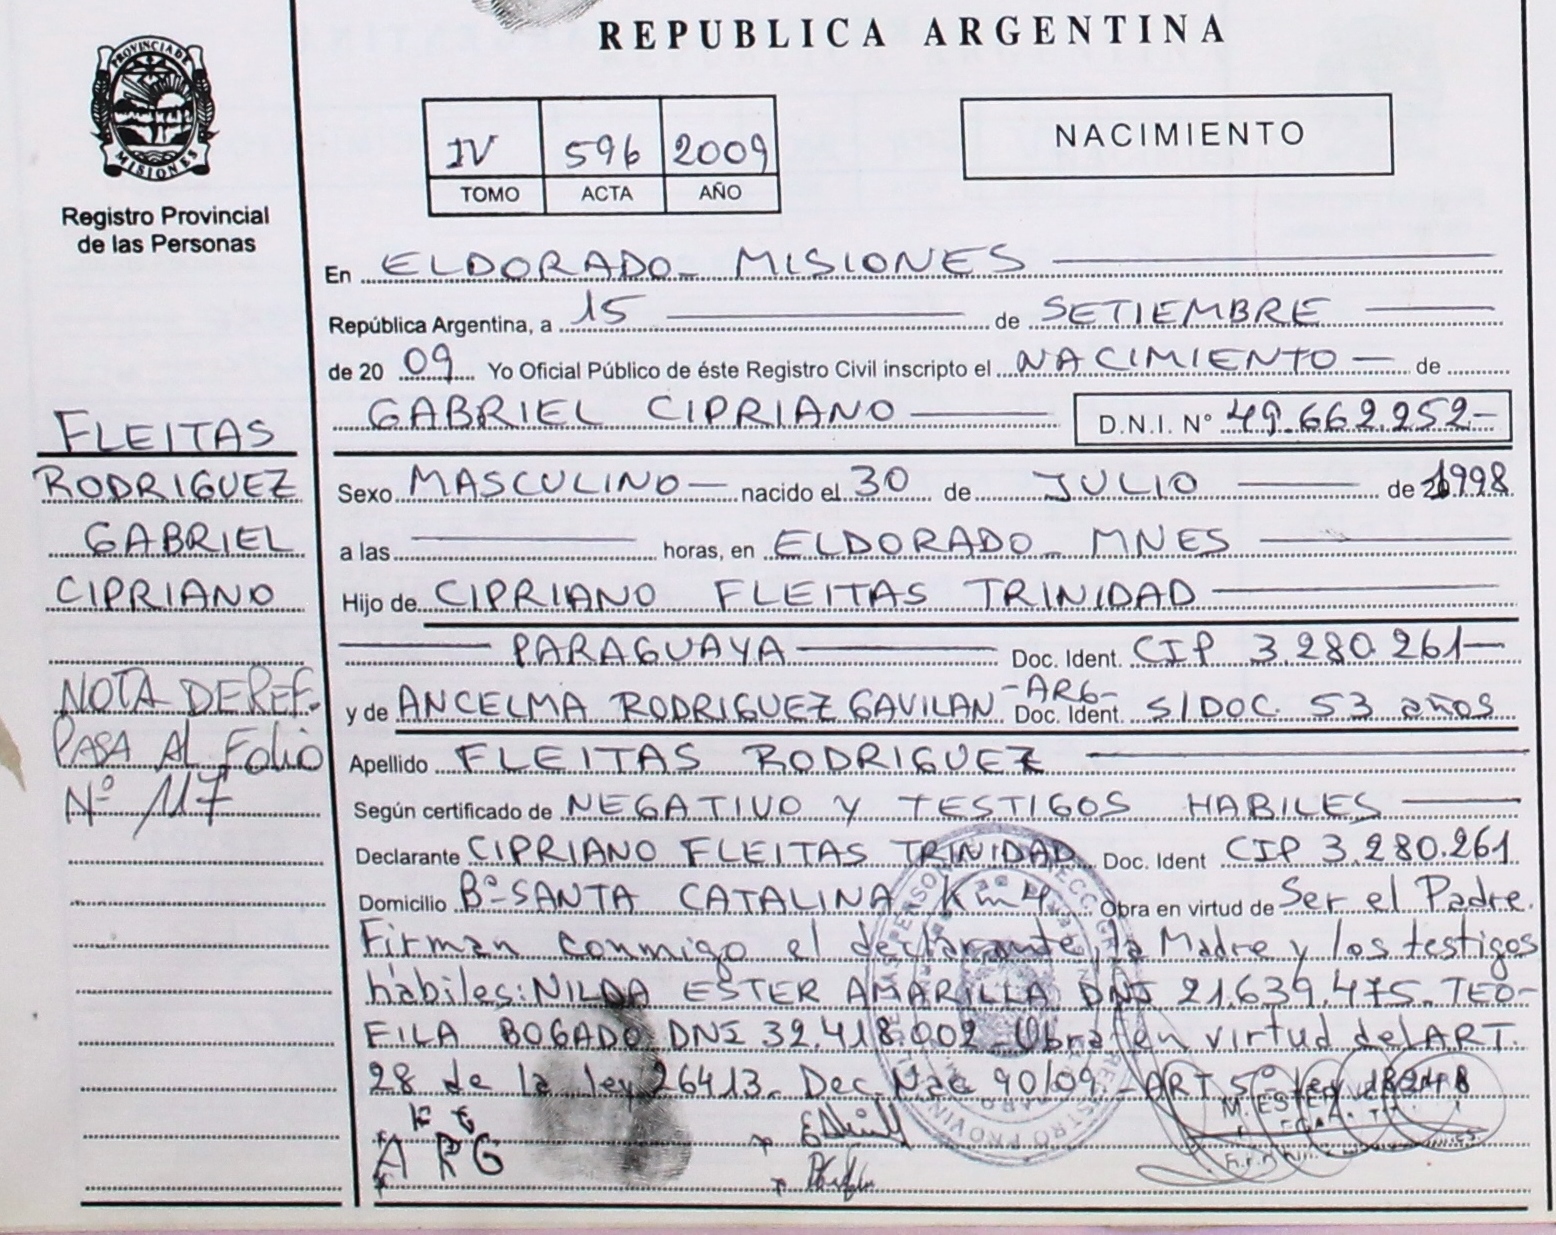 REPUBLICA ARGENTINA
PROVINCIA DE
MISIONES
Registro Provincial
de las Personas
IV 596 2009
TOMO ACTA AÑO
NACIMIENTO
En ELDORADO - MISIONES
República Argentina, a 15 de SETIEMBRE
de 20 09 Yo Oficial Público de éste Registro Civil inscripto el NACIMIENTO de
GABRIEL CIPRIANO D.N.I. N° 49.662.252-
Sexo MASCULINO nacido el 30 de JULIO de 1998
a las horas, en ELDORADO - MNES
Hijo de CIPRIANO FLEITAS TRINIDAD
PARAGUAYA Doc. Ident. CIP 3.280.261-
y de ANCELMA RODRIGUEZ GAVILAN -ARG- Doc. Ident. S/DOC. 53 años
Apellido FLEITAS RODRIGUEZ
Según certificado de NEGATIVO Y TESTIGOS HABILES
Declarante CIPRIANO FLEITAS TRINIDAD Doc. Ident CIP 3.280.261
Domicilio Bº-SANTA CATALINA Km 4 Obra en virtud de Ser el Padre.
Firman conmigo el declarante, la Madre y los testigos
hábiles: NILDA ESTER AMARILLA DNI 21.639.475. TEO-
FILA BOGADO DNI 32.418.002 - Obra en virtud del ART.
28 de la ley 26413. Dec. Nac 90/09 - ART 5º ley 18248
ARG
FLEITAS
RODRIGUEZ
GABRIEL
CIPRIANO
NOTA DE REF.
PASA AL Folio
Nº 117